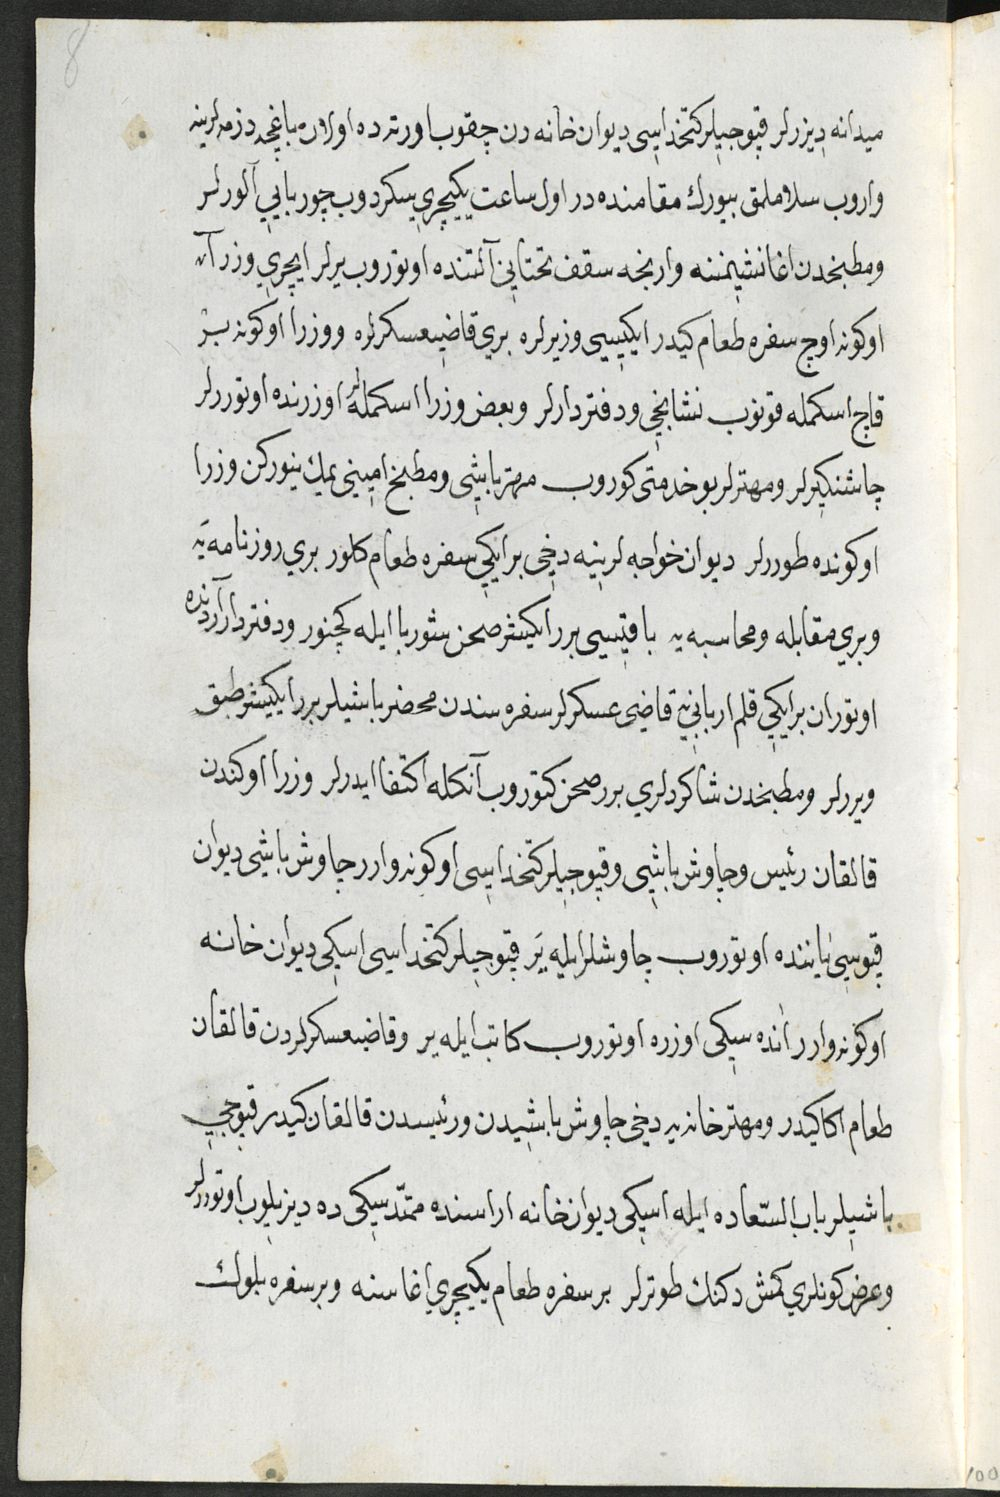 8
ميدانه ديزرلر قپوجيلر كتخداسى ديوان خانه دن چقوب اورته ده اولان باغچه دزمه لرينه
واروب سلاملمق بيورك مقامنده در اول ساعت يكيچرى سكردوب چوربايى آلورلر
ومطبخدن اغا نشيمننه وارنجه سقف تحتانى آلتنده اوتوروب يرلر ايچرى وزرا
اوكونه اوچ سفره طعام كيدر ايكيسى وزيرلره برى قاضيعسكرلره ووزرا اوكونه بر
قاچ اسكمله قونوب نشانجى ودفتردارلر وبعض وزرا اسكمله لر اوزرنده اوتوررلر
چاشنكيرلر ومهترلر بو خدمتى كوروب مهتر باشى ومطبخ امينى يمك ينوركن وزرا
اوكونده طوررلر ديوان خواجه لرينه دخى بر ايكى سفره طعام كلور برى روزنامه يه
وبرى مقابله ومحاسبه يه باقيسى برر ايكيشر صحن شوربا ايله كچنور ودفتردار آردنده
اوتوران بر ايكى قلم اربابنه قاضى عسكرلر سفره سندن محضر باشيلر برر ايكيشر طبق
ويررلر ومطبخدن شاكردلرى برر صحن كتوروب آنكله اكتفا ايدرلر وزرا اوكندن
قالقان رئيس وچاوش باشى وقپوجيلر كتخداسى اوكونه وارر چاوش باشى ديوان
قپوسى ياننده اوتوروب چاوشلر ايله ير قپوجيلر كتخداسى اسكى ديوان خانه
اوكونه وارر انده سكى اوزره اوتوروب كاتب ايله ير وقاضيعسكرلردن قالقان
طعام اكا كيدر ومهترخانه يه دخى چاوش باشيدن ورئيسدن قالقان كيدر قپوجى
باشيلر باب السعاده ايله اسكى ديوانخانه اراسنده ممتد سكى ده ديزيلوب اوتوررلر
وعرض كونلرى كمش دكنك طوترلر بر سفره طعام يكيچرى اغاسنه وبر سفره بلوك
100